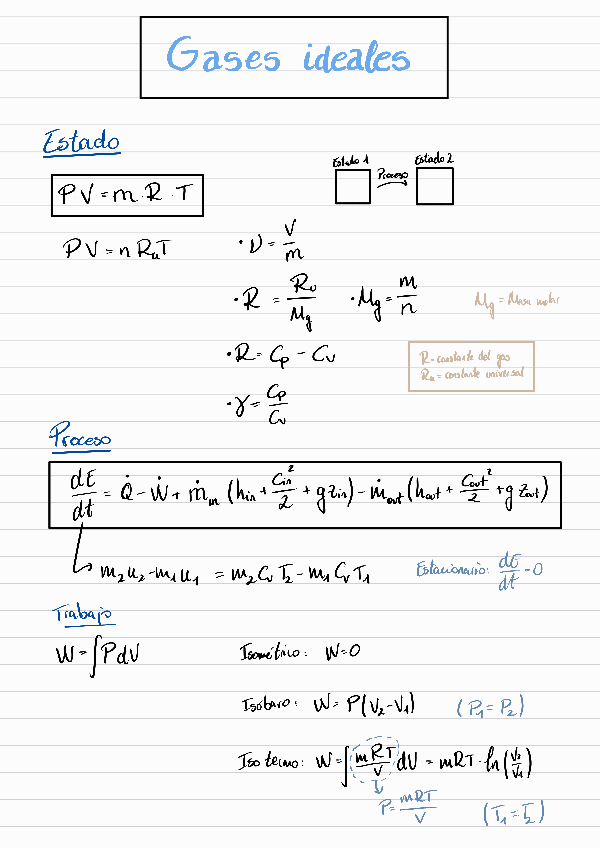 Gases ideales
Estado
Estado 1 Proceso Estado 2
PV = m · R · T
PV = n RuT
· ν = V/m
· R = Ru/Mg · Mg = m/n Mg = Masa molar
· R = Cp - Cv
R = constante del gas
Ru = constante universal
· γ = Cp/Cv
Proceso
dE/dt = Q̇ - Ẇ + ṁin (hin + Cin²/2 + g zin) - ṁout (hout + Cout²/2 + g zout)
m2u2 - m1u1 = m2CvT2 - m1CvT1 Estacionario: dE/dt = 0
Trabajo
W = ∫PdV Isométrico: W = 0
Isóbaro: W = P(V2 - V1) (P1 = P2)
Isotermo: W = ∫ mRT/V dV = mRT · ln(V2/V1)
P = mRT/V (T1 = T2)